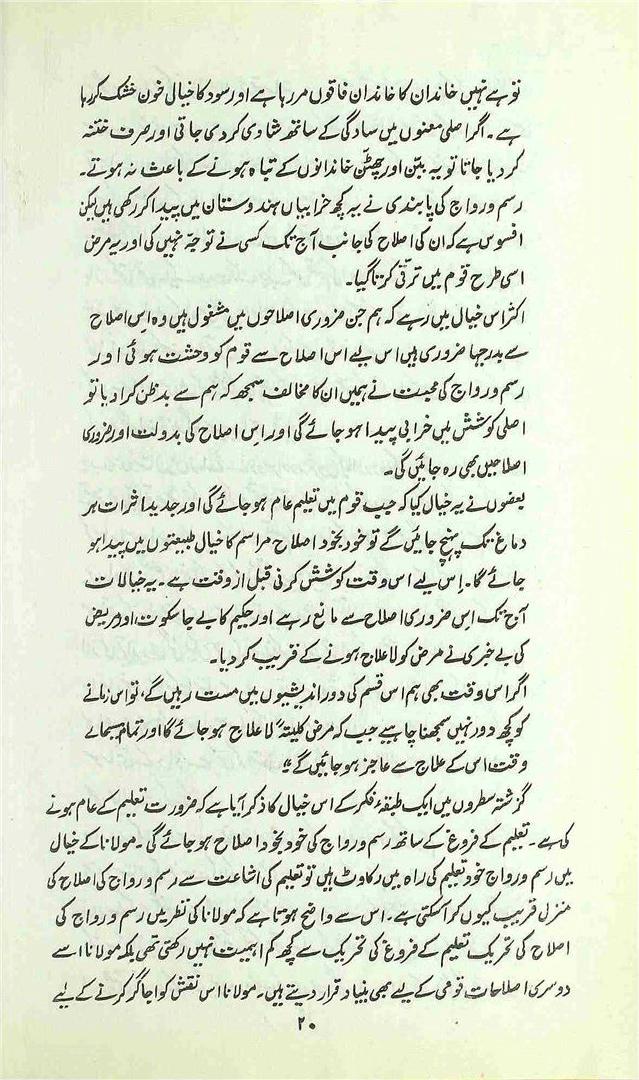 توہے نہیں خاندان کا خاندان فاقوں مررہا ہے اور سود کا خیالی خون خشک کررہا
ہے۔ اگر اصلی معنوں میں سادگی کے ساتھ شادی کردی جاتی اور صرف ختنہ
کر دیا جاتا تو یہ بین اور چھٹن خاندانوں کے تباہ ہونے کے باعث نہ ہوتے۔
رسم و رواج کی پابندی نے یہ کچھ خرابیاں ہندوستان میں پیدا کر رکھی ہیں لیکن
افسوس ہے کہ ان کی اصلاح کی جانب آج تک کسی نے توجہ نہیں کی اور یہ مرض
اسی طرح قوم میں ترقی کرتا گیا۔
اکثر اس خیال میں رہے کہ ہم جن ضروری اصلاحوں میں مشغول ہیں وہ اس اصلاح
سے بدرجہا ضروری ہیں اس لیے اس اصلاح سے قوم کو وحشت ہوئی اور
رسم و رواج کی محبت نے ہمیں ان کا مخالف سمجھ کر ہم سے بدظن کرا دیا تو
اصلی کوشش میں خرابی پیدا ہو جائے گی اور اس اصلاح کی بدولت اور ضروری
اصلاحیں بھی رہ جائیں گی۔
بعضوں نے یہ خیال کیا کہ جب قوم میں تعلیم عام ہو جائے گی اور جدید اثرات ہر
دماغ تک پہنچ جائیں گے تو خود بخود اصلاح مراسم کا خیال طبیعتوں میں پیدا ہو
جائے گا۔ اس لیے اس وقت کوشش کرنی قبل از وقت ہے۔ یہ خیالات
آج تک اس ضروری اصلاح سے مانع رہے اور حکیم کا بے جا سکوت اور مریض
کی بے خبری نے مرض کو لا علاج ہونے کے قریب کر دیا۔
اگر اس وقت بھی ہم اس قسم کی دور اندیشیوں میں مست رہیں گے، تو اس زمانے
کو کچھ دور نہیں سمجھنا چاہیے جب کہ مرض کلیتہً لا علاج ہو جائے گا اور تمام مسیحائے
وقت اس کے علاج سے عاجز ہو جائیں گے"۔
گزشتہ سطروں میں ایک طبقۂ فکر کے اس خیال کا ذکر آیا ہے کہ ضرورت تعلیم کے عام ہونے
کی ہے۔ تعلیم کے فروغ کے ساتھ رسم و رواج کی خود بخود اصلاح ہو جائے گی۔ مولانا کے خیال
میں رسم و رواج خود تعلیم کی راہ میں رکاوٹ ہیں تو تعلیم کی اشاعت سے رسم و رواج کی اصلاح کی
منزل قریب کیوں کر آسکتی ہے۔ اس سے واضح ہوتا ہے کہ مولانا کی نظر میں رسم و رواج کی
اصلاح کی تحریک تعلیم کے فروغ کی تحریک سے کچھ کم اہمیت نہیں رکھتی تھی بلکہ مولانا اسے
دوسری اصلاحات قومی کے لیے بھی بنیاد قرار دیتے ہیں۔ مولانا اس نقش کو اجاگر کرنے کے لیے
۲۰